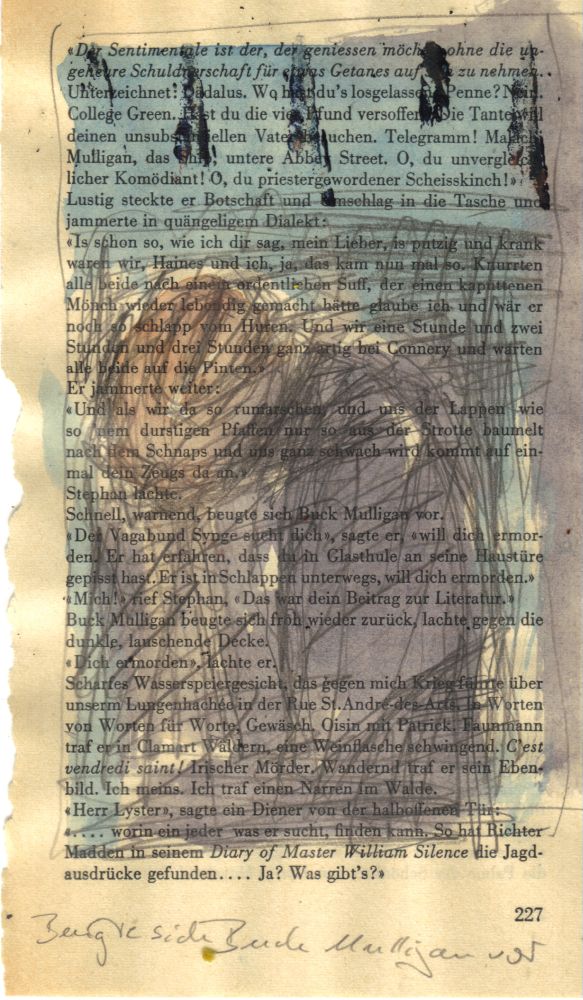 «Der Sentimentale ist der, der geniessen möchte ohne die un-
geheure Schuldnerschaft für etwas Getanes auf sich zu nehmen.
Unterzeichnet: Dädalus. Wo hast du's losgelassen? Penne? Nein.
College Green. Hast du die vier Pfund versoffen? Die Tante will
deinen unsubstanziellen Vater besuchen. Telegramm! Malachi
Mulligan, das Ship, untere Abbey Street. O, du unvergleich-
licher Komödiant! O, du priestergewordener Scheisskinch!»
Lustig steckte er Botschaft und Umschlag in die Tasche und
jammerte in quängeligem Dialekt:
«Is schon so, wie ich dir sag, mein Lieber, is putzig und krank
waren wir, Haines und ich, ja, das kam nun mal so. Knurrten
alle beide nach einem ordentlichen Suff, der einen kaputtenen
Mönch wieder lebendig gemacht hätte glaube ich und wär er
noch so schlapp vom Huren. Und wir eine Stunde und zwei
Stunden und drei Stunden ganz artig bei Connery und warten
alle beide auf die Pinten.»
Er jammerte weiter:
«Und als wir da so rumarschen, und uns der Lappen wie
so nem durstigen Pfaffen nur so aus der Strotte baumelt
nach nem Schnaps und uns ganz schwach wird kommt auf ein-
mal dein Zeugs da an.»
Stephan lachte.
Schnell, warnend, beugte sich Buck Mulligan vor.
«Der Vagabund Synge sucht dich», sagte er, «will dich ermor-
den. Er hat erfahren, dass du in Glasthule an seine Haustüre
gepisst hast. Er ist in Schlappen unterwegs, will dich ermorden.»
«Mich!» rief Stephan, «Das war dein Beitrag zur Literatur.»
Buck Mulligan beugte sich froh wieder zurück, lachte gegen die
dunkle, lauschende Decke.
«Dich ermorden», lachte er.
Scharfes Wasserspeiergesicht, das gegen mich Krieg führte über
unserm Lungenhachée in der Rue St. André-des-Arts. In Worten
von Worten für Worte, Gewäsch. Oisin mit Patrick. Faunmann
traf er in Clamart Wäldern, eine Weinflasche schwingend. C'est
vendredi saint! Irischer Mörder. Wandernd traf er sein Eben-
bild. Ich meins. Ich traf einen Narren im Walde.
«Herr Lyster», sagte ein Diener von der halboffenen Tür:
«.... worin ein jeder was er sucht, finden kann. So hat Richter
Madden in seinem Diary of Master William Silence die Jagd-
ausdrücke gefunden.... Ja? Was gibt's?»
227
Beugte sich Buck Mulligan vor